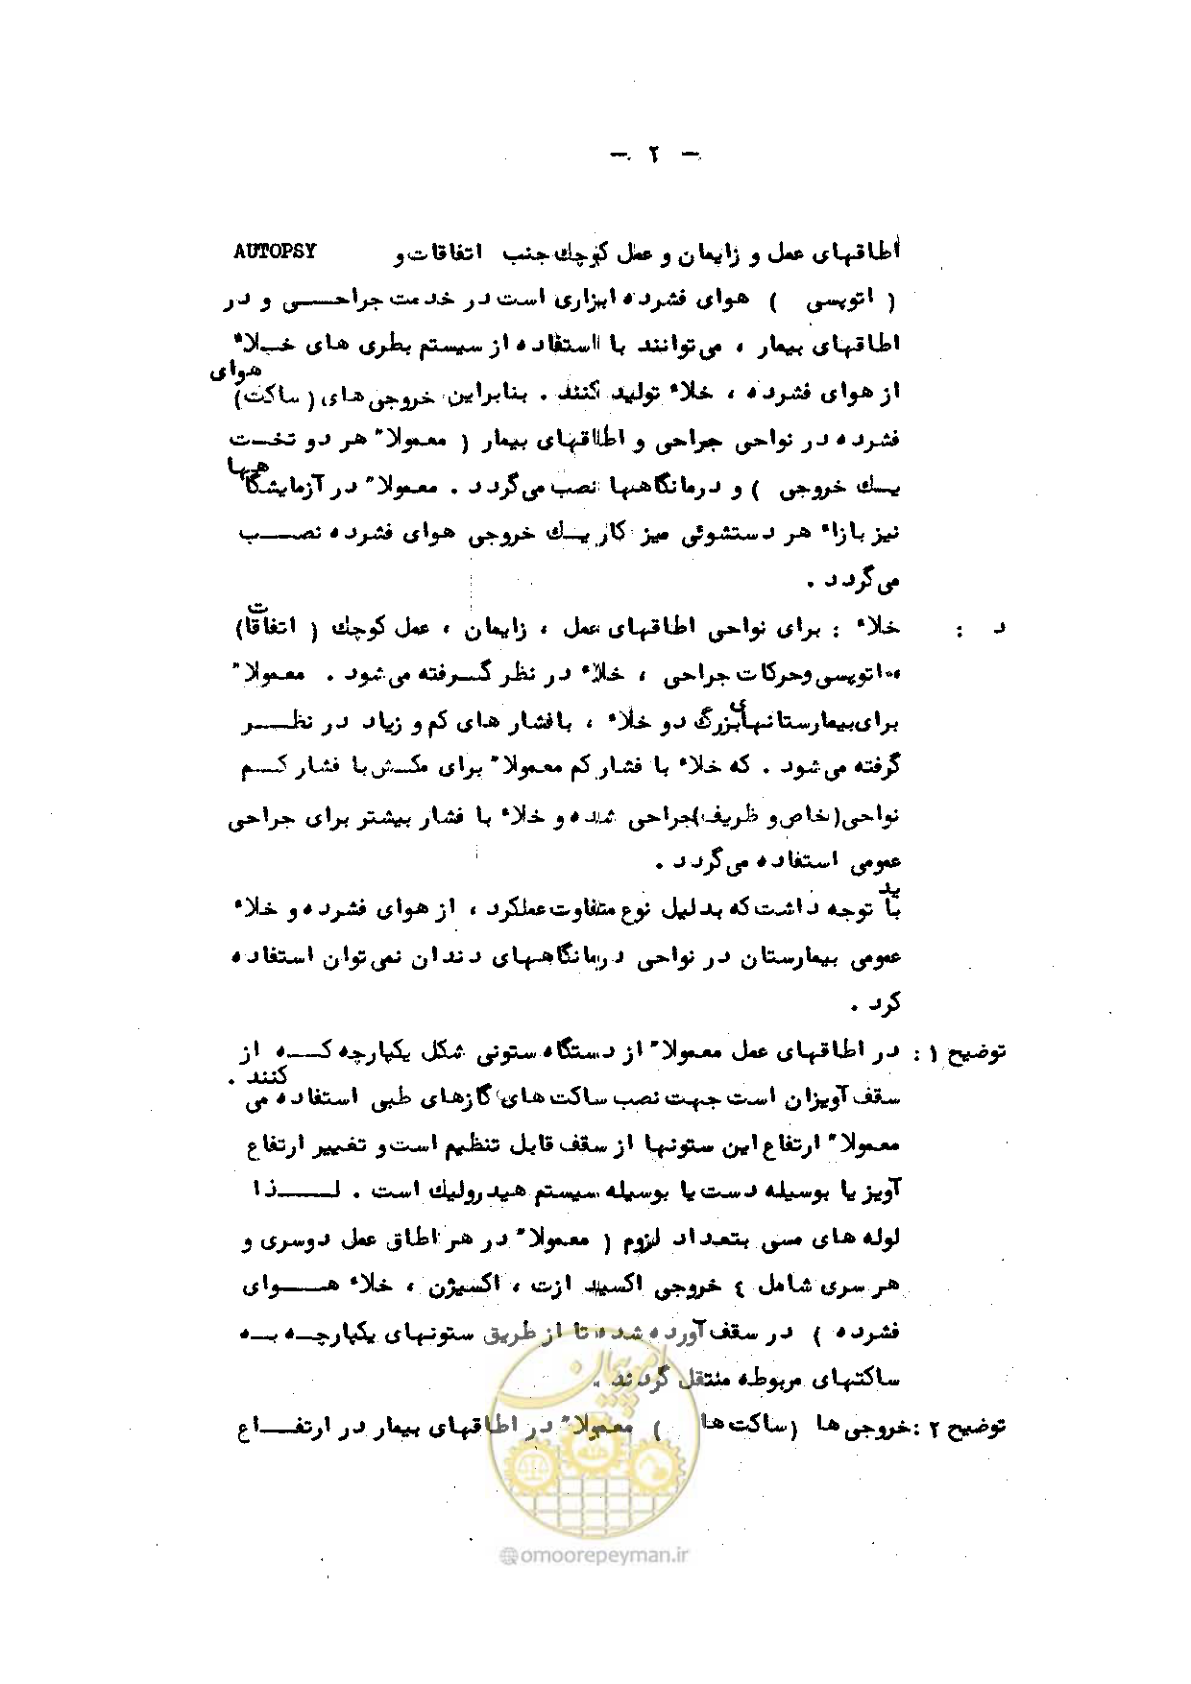 - ۲ -
اطاقهای عمل و زایمان و عمل کوچک جنب اتفاقات و AUTOPSY
( اتوپسی ) هوای فشرده ابزاری است در خدمت جراحی و در
اطاقهای بیمار ، می‌توانند با استفاده از سیستم بطری های خلاء
از هوای فشرده ، خلاء تولید کنند . بنابراین خروجی‌های ( ساکت) هوای
فشرده در نواحی جراحی و اطاقهای بیمار ( معمولا" هر دو تخت
یک خروجی ) و درمانگاهها نصب می‌گردد . معمولا" در آزمایشگاهها
نیز بازاء هر دستشوئی میز کار یک خروجی هوای فشرده نصب
می‌گردد .
د : خلاء : برای نواحی اطاقهای عمل ، زایمان ، عمل کوچک ( اتفاقات)
اتوپسی وحرکات جراحی ، خلاء در نظر گرفته می‌شود . معمولا"
برای بیمارستانهای بزرگ دو خلاء ، بافشار های کم و زیاد در نظر
گرفته می‌شود . که خلاء با فشار کم معمولا" برای مکش با فشار کم
نواحی(خاص و ظریف)جراحی شده و خلاء با فشار بیشتر برای جراحی
عمومی استفاده می‌گردد .
باید توجه داشت که بدلیل نوع متفاوت عملکرد ، از هوای فشرده و خلاء
عمومی بیمارستان در نواحی درمانگاههای دندان نمی‌توان استفاده
کرد .
توضیح ۱ : در اطاقهای عمل معمولا" از دستگاه ستونی شکل یکپارچه که از
سقف آویزان است جهت نصب ساکت های گازهای طبی استفاده می کنند .
معمولا" ارتفاع این ستونها از سقف قابل تنظیم است و تغییر ارتفاع
آویز یا بوسیله دست یا بوسیله سیستم هیدرولیک است . لذا
لوله های مسی بتعداد لزوم ( معمولا" در هر اطاق عمل دوسری و
هر سری شامل ۴ خروجی اکسید ازت ، اکسیژن ، خلاء هوای
فشرده ) در سقف آورده شده تا از طریق ستونهای یکپارچه به
ساکتهای مربوطه منتقل گردند .
توضیح ۲ : خروجی ها (ساکت ها ) معمولا" در اطاقهای بیمار در ارتفاع
امور پیمان
@omoorepeyman.ir